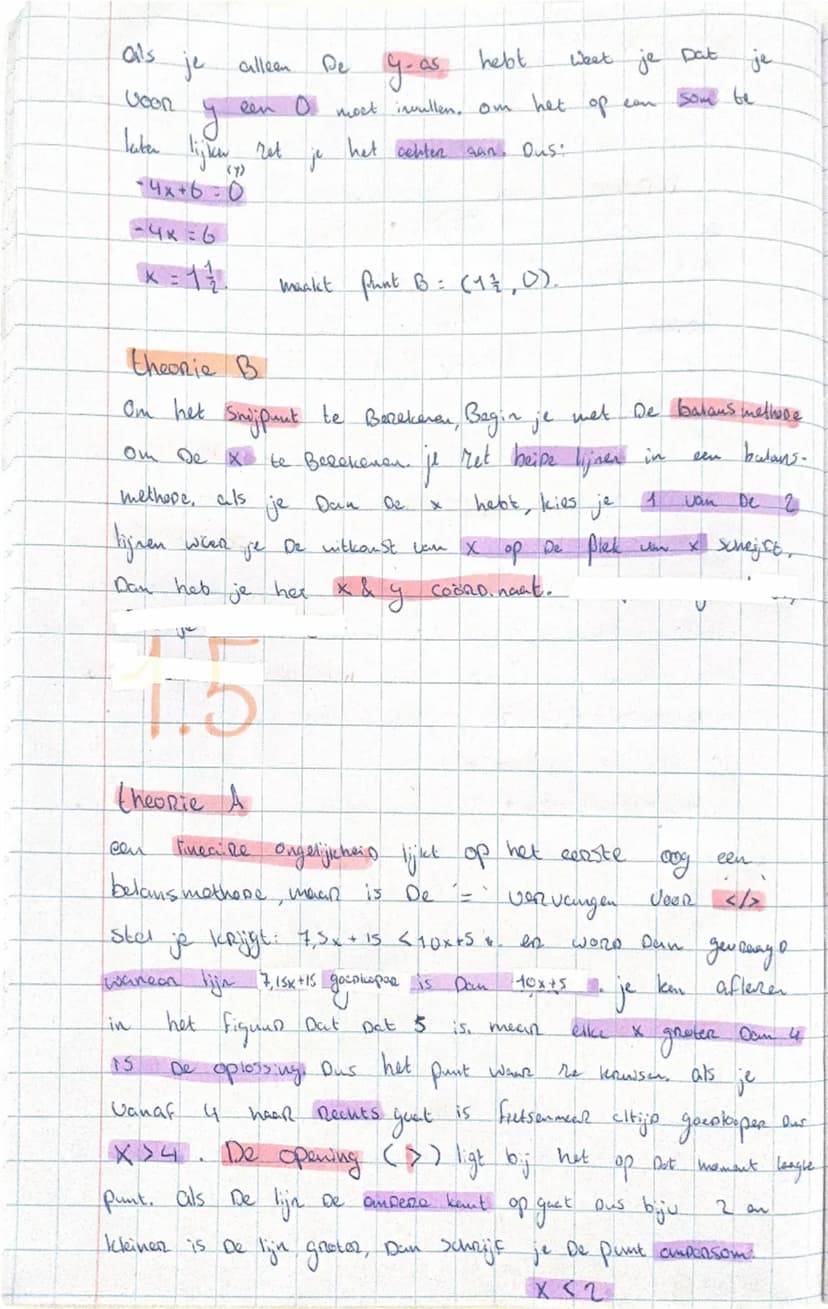 als je alleen De y-as hebt weet je Dat je
voor y een 0 moet invullen. om het op een som te
laten lijken zet je het achter aan. Dus:
(y)
-4x+6=0
-4x=6
x = 1½. maakt punt B = (1½, 0).
theorie B
Om het Snijpunt te Berekenen, Begin je met De balansmethode
om De x te Berekenen. je zet beide lijnen in een balans-
methode. als je Dan De x hebt, kies je 1 van De 2
lijnen waar je De uitkomst van x op De plek van x schrijft.
Dan heb je het x & y coördinaat.
1.5
theorie A
een lineaire ongelijkheid lijkt op het eerste oog een
balansmethode, maar is De '=' vervangen voor </>
Stel je krijgt: 7,5x + 15 < 10x+5 . en word Dan gevraagd
wanneer lijn 7,15x+15 goedkoper is Dan 10x+5 . je kan aflezen
in het figuur Dat Dat 5 is. maar elke x groter Dan 4
is De oplossing. Dus het punt waar ze kruisen. als je
vanaf 4 naar Rechts gaat is fietsenmeer altijd goedkoper Dus
x>4 . De opening (>) ligt bij het op Dat moment laagste
punt. als De lijn De andere kant op gaat Dus bijv 2 en
kleiner is De lijn groter, Dan schrijf je De punt andersom.
x < 2